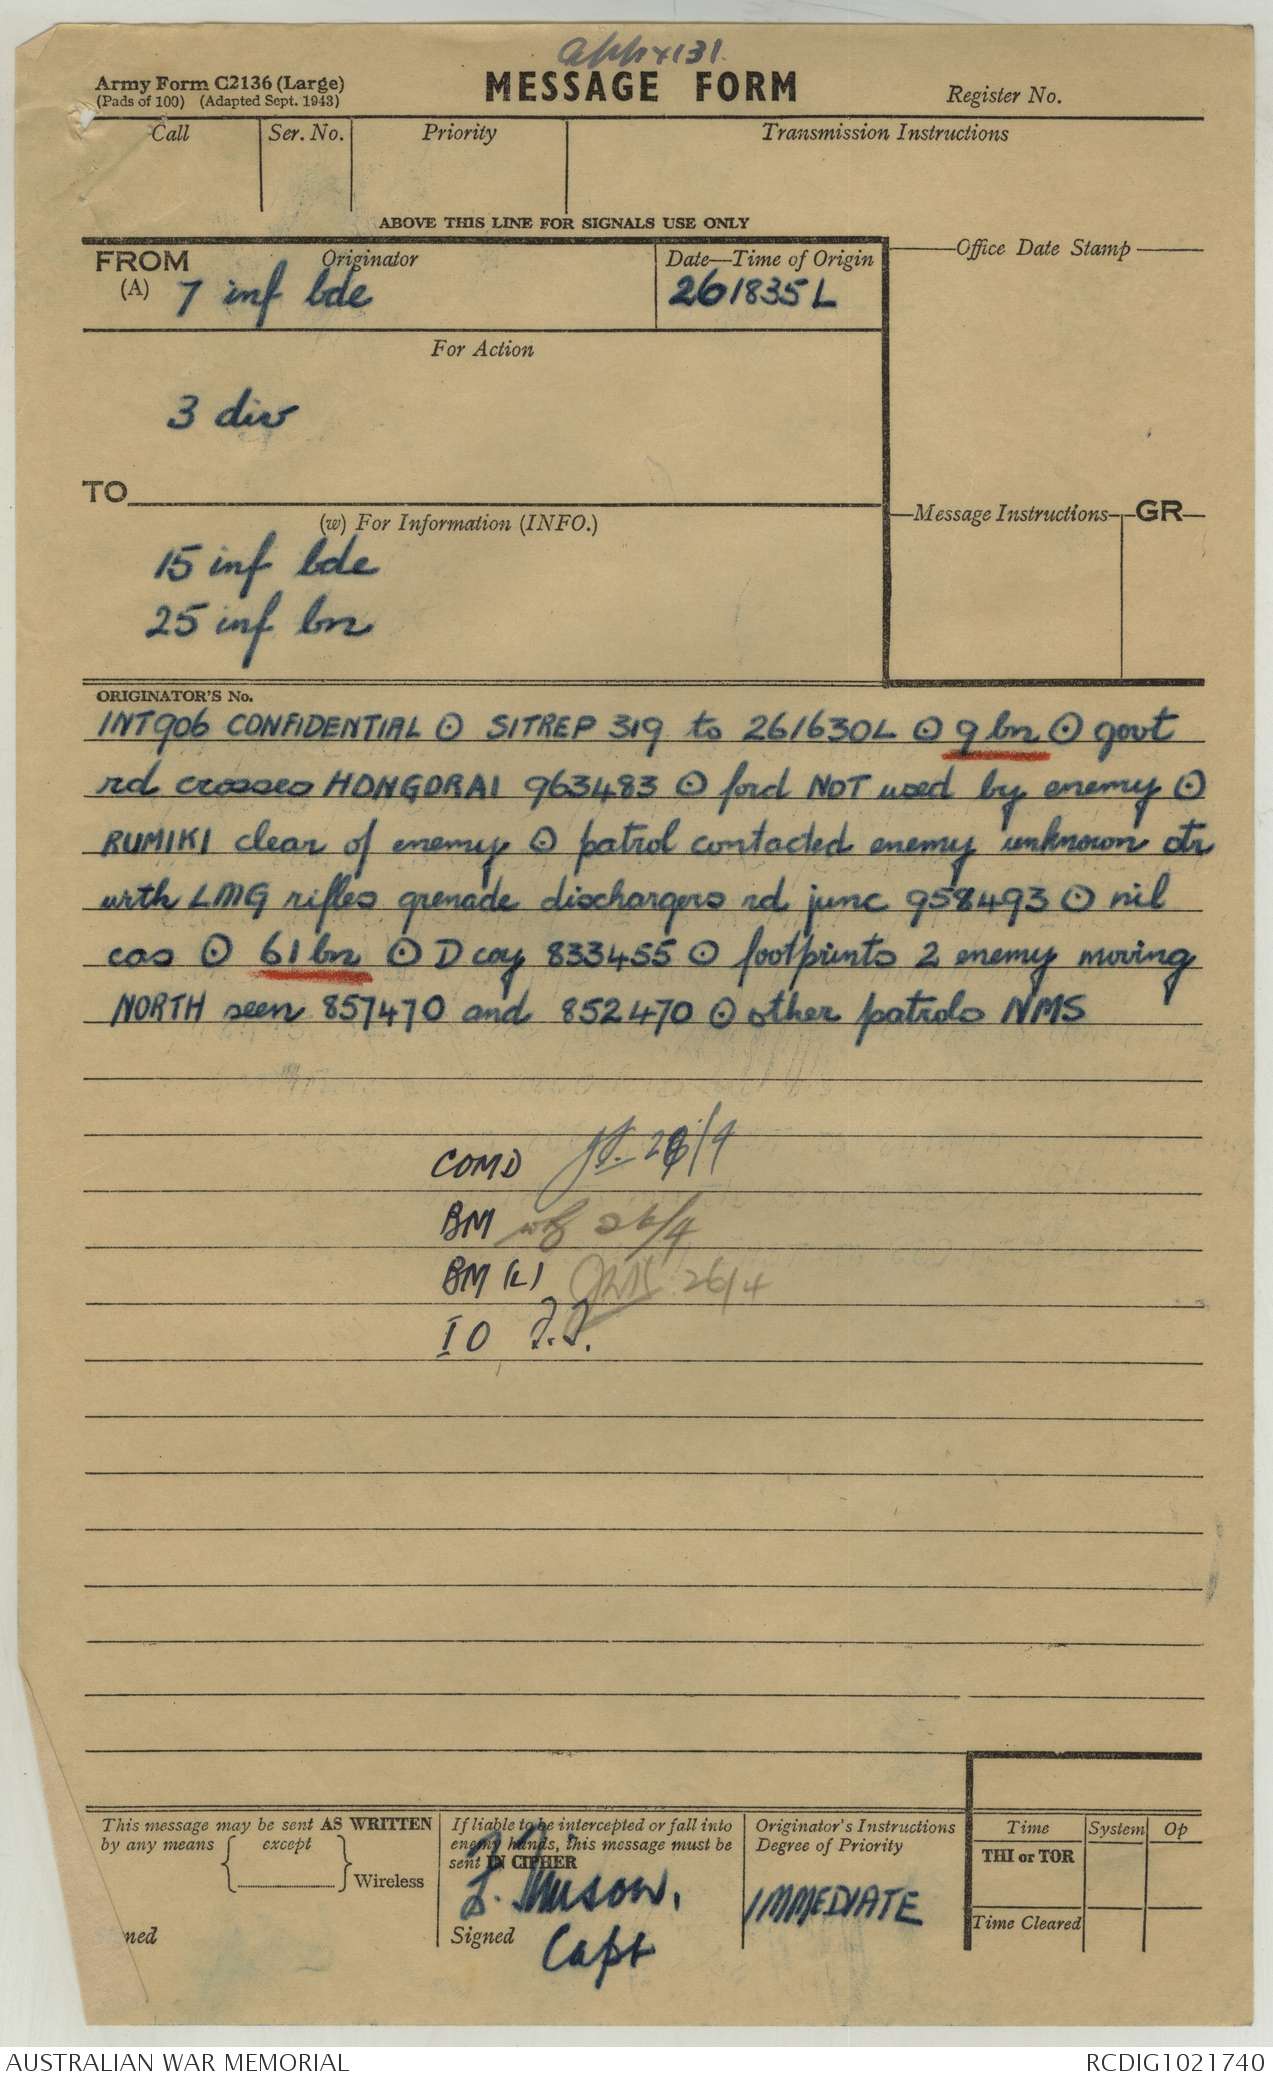 appx 131.
Army Form C2136 (Large)
(Pads of 100) (Adapted Sept. 1943)
MESSAGE FORM
Register No.
Call
Ser. No.
Priority
Transmission Instructions
ABOVE THIS LINE FOR SIGNALS USE ONLY
FROM
(A)
Originator
7 inf bde
Date—Time of Origin
261835L
Office Date Stamp
For Action
3 div
TO
(w) For Information (INFO.)
15 inf bde
25 inf bn
Message Instructions
GR
ORIGINATOR'S No.
INT906 CONFIDENTIAL ⊙ SITREP 319 to 261630L ⊙ 9 bn ⊙ govt
rd crosses HONGORAI 963483 ⊙ ford NOT used by enemy ⊙
RUMIKI clear of enemy ⊙ patrol contacted enemy unknown str
with LMG rifles grenade dischargers rd junc 958493 ⊙ nil
cas ⊙ 61 bn ⊙ D coy 833455 ⊙ footprints 2 enemy moving
NORTH seen 857470 and 852470 ⊙ other patrols NMS
COMD 26/4
BM 26/4
BM (L) 26/4
IO
This message may be sent AS WRITTEN
by any means { except } Wireless
ned
If liable to be intercepted or fall into
enemy hands, this message must be
sent IN CIPHER
Signed
Capt
Originator's Instructions
Degree of Priority
IMMEDIATE
Time
System
Op
THI or TOR
Time Cleared
AUSTRALIAN WAR MEMORIAL
RCDIG1021740